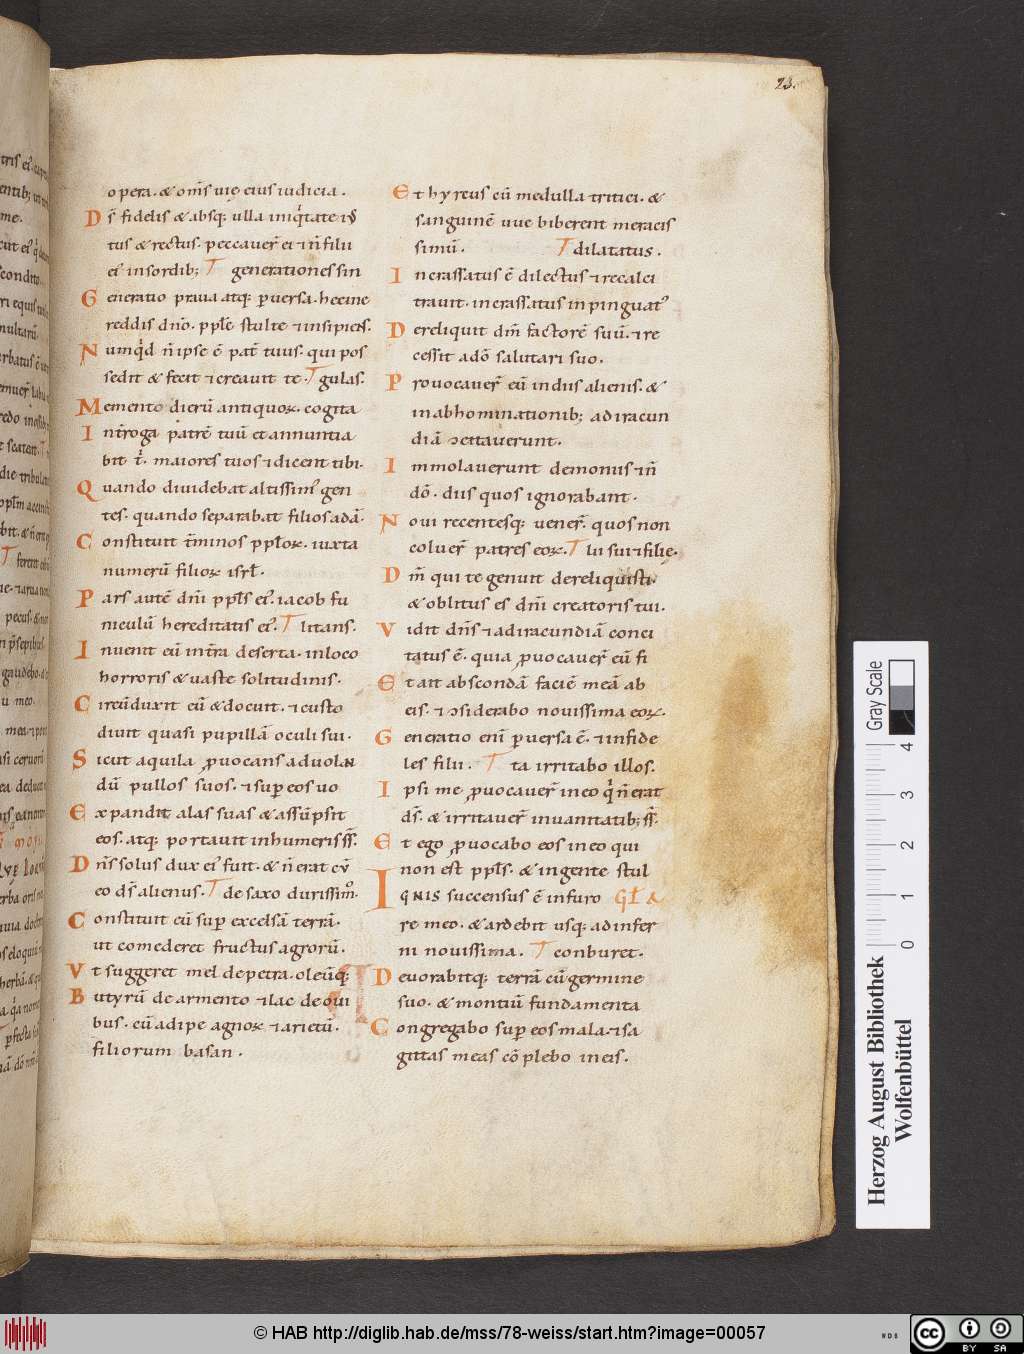 23.
opera. & om̄s uię eius iudicia.
D s̄ fidelis & absq; ulla iniq̇tate ius
tus & rectus. peccauer̄ ei & n̄ filii
ei' in sordib; T generationes sin
G eneratio praua atq; puersa. heccine
reddis dn̄o. pople stulte & insipiens.
N umq̇d n̄ ipse ē pat̄ tuus. qui pos
sedit & fecit & creauit te. T gulas.
M emento dierū antiquoꝝ. cogita
I nt̄roga patrē tuū et annuntia
bit t̄. maiores tuos & dicent tibi.
Q uando diuidebat altissim' gen
tes. quando separabat filios adā.
C onstituit t̄minos pploꝝ. iuxta
numerū filioꝝ isrł.
P ars autē dn̄i ppls ei'. iacob fu
niculū hereditatis ei'. T litans.
I nuenit eū in t̄ra deserta. in loco
horroris & uaste solitudinis.
C ircūduxit eū & docuit. & custo
diuit quasi pupillā oculi sui.
S icut aquila ꝓuocans ad uolan
dū pullos suos. & sup eos uo
E xpandit alas suas & assūpsit
eos. atq; portauit in humeris s̄s̄.
D n̄s solus dux ei' fuit. & n̄ erat cū
eo ds̄ alienus. T de saxo durissim̊.
C onstituit eū sup excelsā terrā.
ut comederet fructus agrorū.
V t suggeret mel de petra. oleūq;
B utyrū de armento & lac de oui
bus. cū adipe agnoꝝ & arietū.
filiorum basan.
E t hyrcus cū medulla tritici. &
sanguinē uue biberent meracis
simū. T dilatatus.
I ncrassatus ē dilectus & recalci
trauit. incrassatus inpinguat'
D ereliquit dm̄ factorē suū. & re
cessit a dō salutari suo.
P rouocauer̄ eū in diis alienis. &
in abhominationib; ad iracun
diā ɔcitauerunt.
I mmolauerunt demoniis & n̄
dō. diis quos ignorabant.
N oui recentesq; uener̄. quos non
coluer̄ patres eoꝝ. T lii sui & filię.
D m̄ qui te genuit dereliquisti.
& oblitus es dn̄i creatoris tui.
V idit dn̄s & ad iracundiā conci
tatus ē. quia ꝓuocauer̄ eū fi
E t ait abscondā faciē meā ab
eis. & ɔsiderabo nouissima eoꝝ.
G eneratio eni puersa ē. & infide
les filii. T ta irritabo illos.
I psi me ꝓuocauer̄ in eo q̇ n̄ erat
ds̄. & irritauer̄ in uanitatib; s̄s̄.
E t ego ꝓuocabo eos in eo qui
non est ppls. & in gente stul
I gnis succensus ē in furo GŁA
re meo. & ardebit usq; ad infer
ni nouissima. T conburet.
D euorabitq; terrā cū germine
suo. & montiū fundamenta
C ongregabo sup eos mala. & sa
gittas meas cō plebo in eis.
Gray Scale
0 1 2 3 4
Herzog August Bibliothek
Wolfenbüttel
© HAB http://diglib.hab.de/mss/78-weiss/start.htm?image=00057
cc BY SA